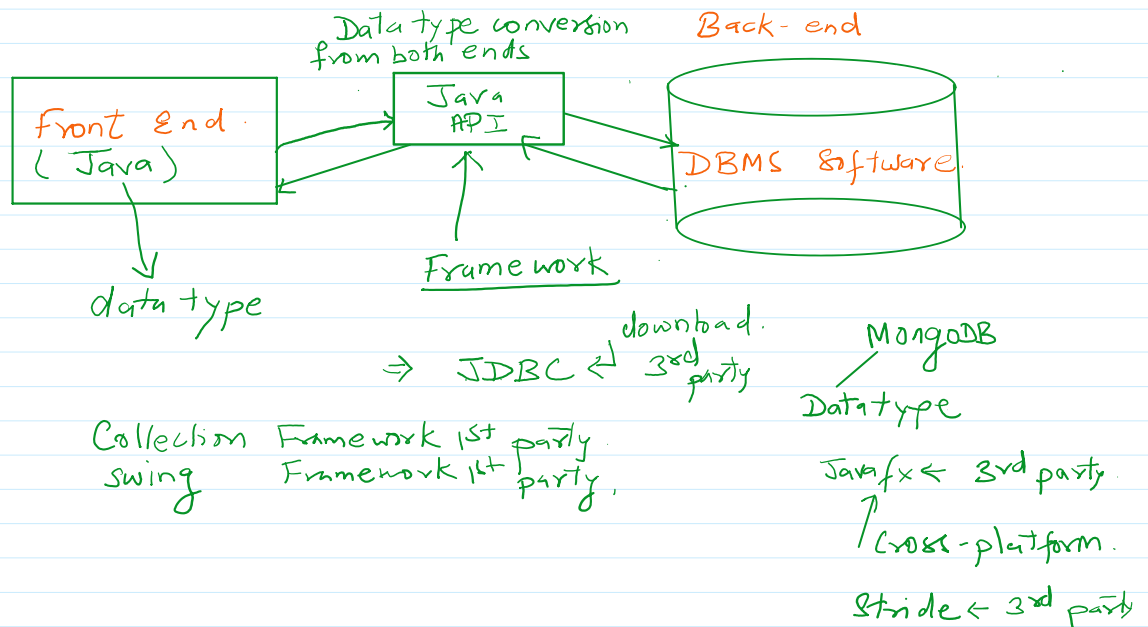 Data type conversion
from both ends
Back-end
Front End
(Java)
Java
API
DBMS Software
Framework
data type
download.
⇒ JDBC ← 3rd
party
MongoDB
Datatype
Collection Framework 1st party
swing Framework 1st party,
Javafx ← 3rd party
Cross-platform.
Stride ← 3rd party